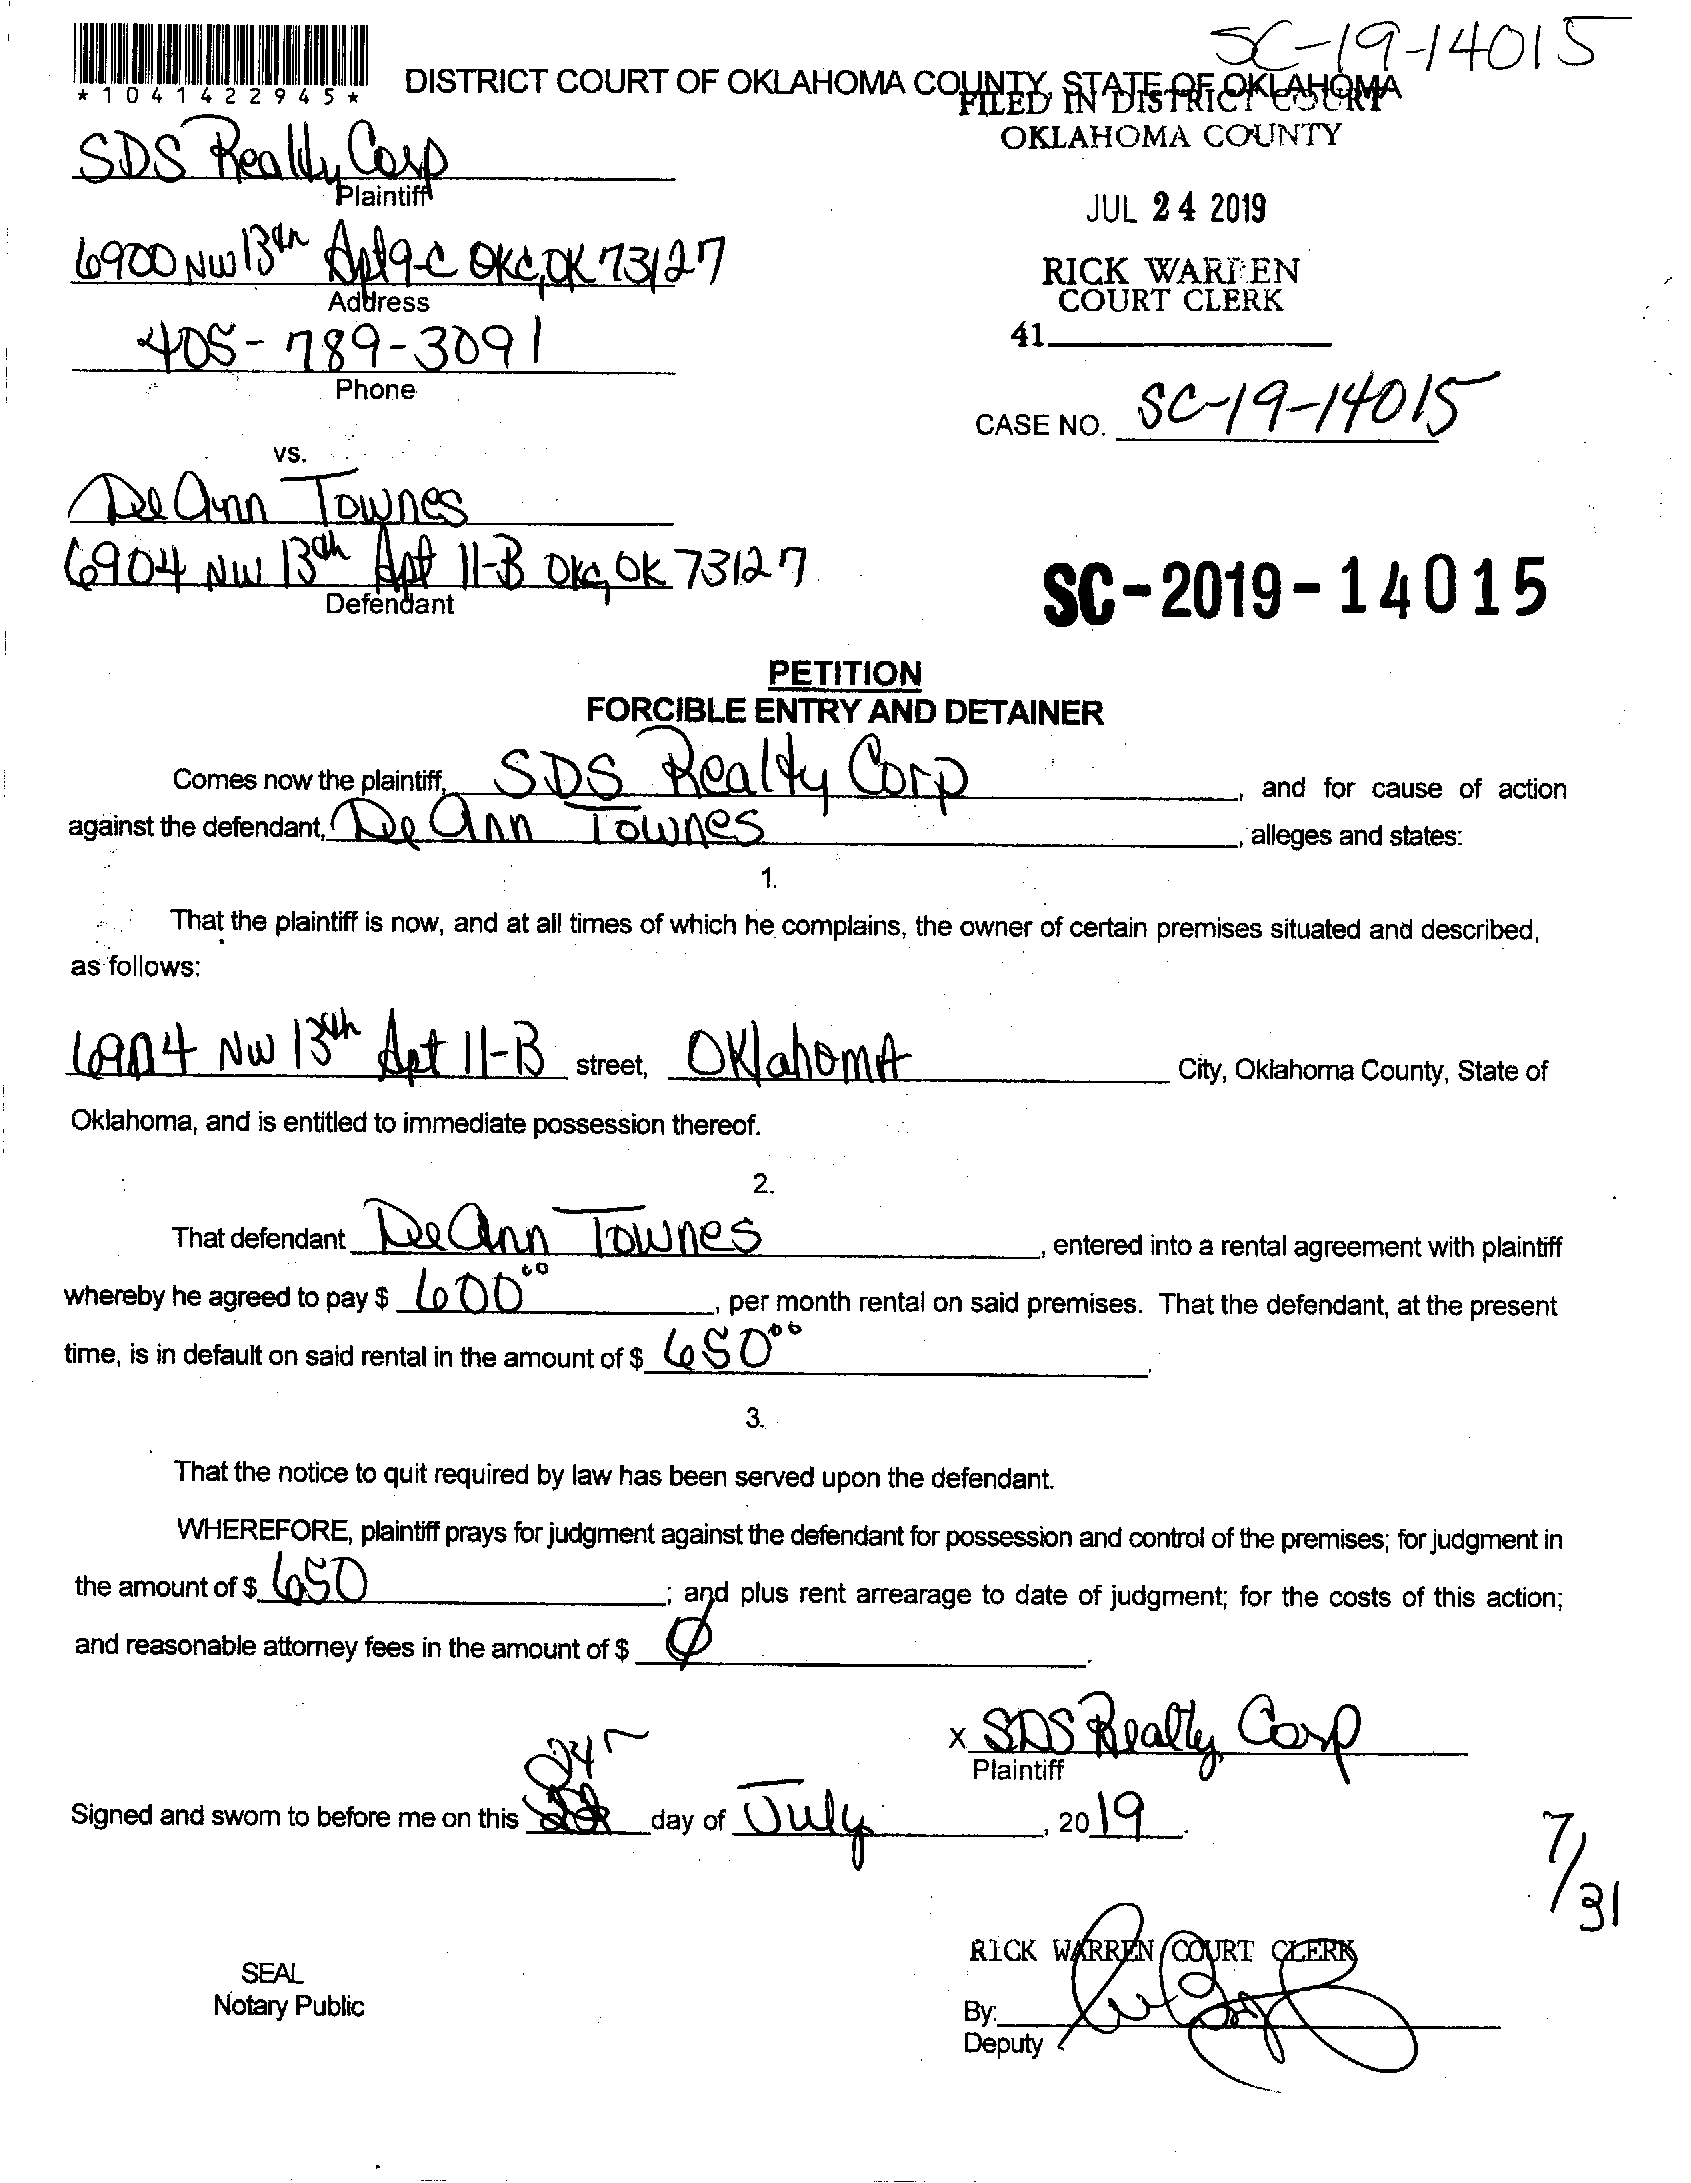 SC-19-14015
*1041422945*
DISTRICT COURT OF OKLAHOMA COUNTY, STATE OF OKLAHOMA
FILED IN DISTRICT COURT
OKLAHOMA COUNTY
SDS Realty Corp
Plaintiff
JUL 24 2019
6900 NW 13th Apt 9-C OKC, OK 73127
Address
RICK WARREN
COURT CLERK
405-789-3091
Phone
41
CASE NO. SC-19-14015
vs.
DeAnn Townes
6904 NW 13th Apt 11-B OKC, OK 73127
Defendant
SC-2019-14015
PETITION
FORCIBLE ENTRY AND DETAINER
Comes now the plaintiff, SDS Realty Corp, and for cause of action
against the defendant, DeAnn Townes, alleges and states:
1.
That the plaintiff is now, and at all times of which he complains, the owner of certain premises situated and described,
as follows:
6904 NW 13th Apt 11-B street, OKlahomA City, Oklahoma County, State of
Oklahoma, and is entitled to immediate possession thereof.
2.
That defendant DeAnn Townes, entered into a rental agreement with plaintiff
whereby he agreed to pay $ 600 00, per month rental on said premises. That the defendant, at the present
time, is in default on said rental in the amount of $ 650 00.
3.
That the notice to quit required by law has been served upon the defendant.
WHEREFORE, plaintiff prays for judgment against the defendant for possession and control of the premises; for judgment in
the amount of $ 650; and plus rent arrearage to date of judgment; for the costs of this action;
and reasonable attorney fees in the amount of $ Ø.
X SDS Realty Corp
Plaintiff
Signed and sworn to before me on this 24 day of July, 2019.
7/31
RICK WARREN COURT CLERK
SEAL
Notary Public
By:
Deputy